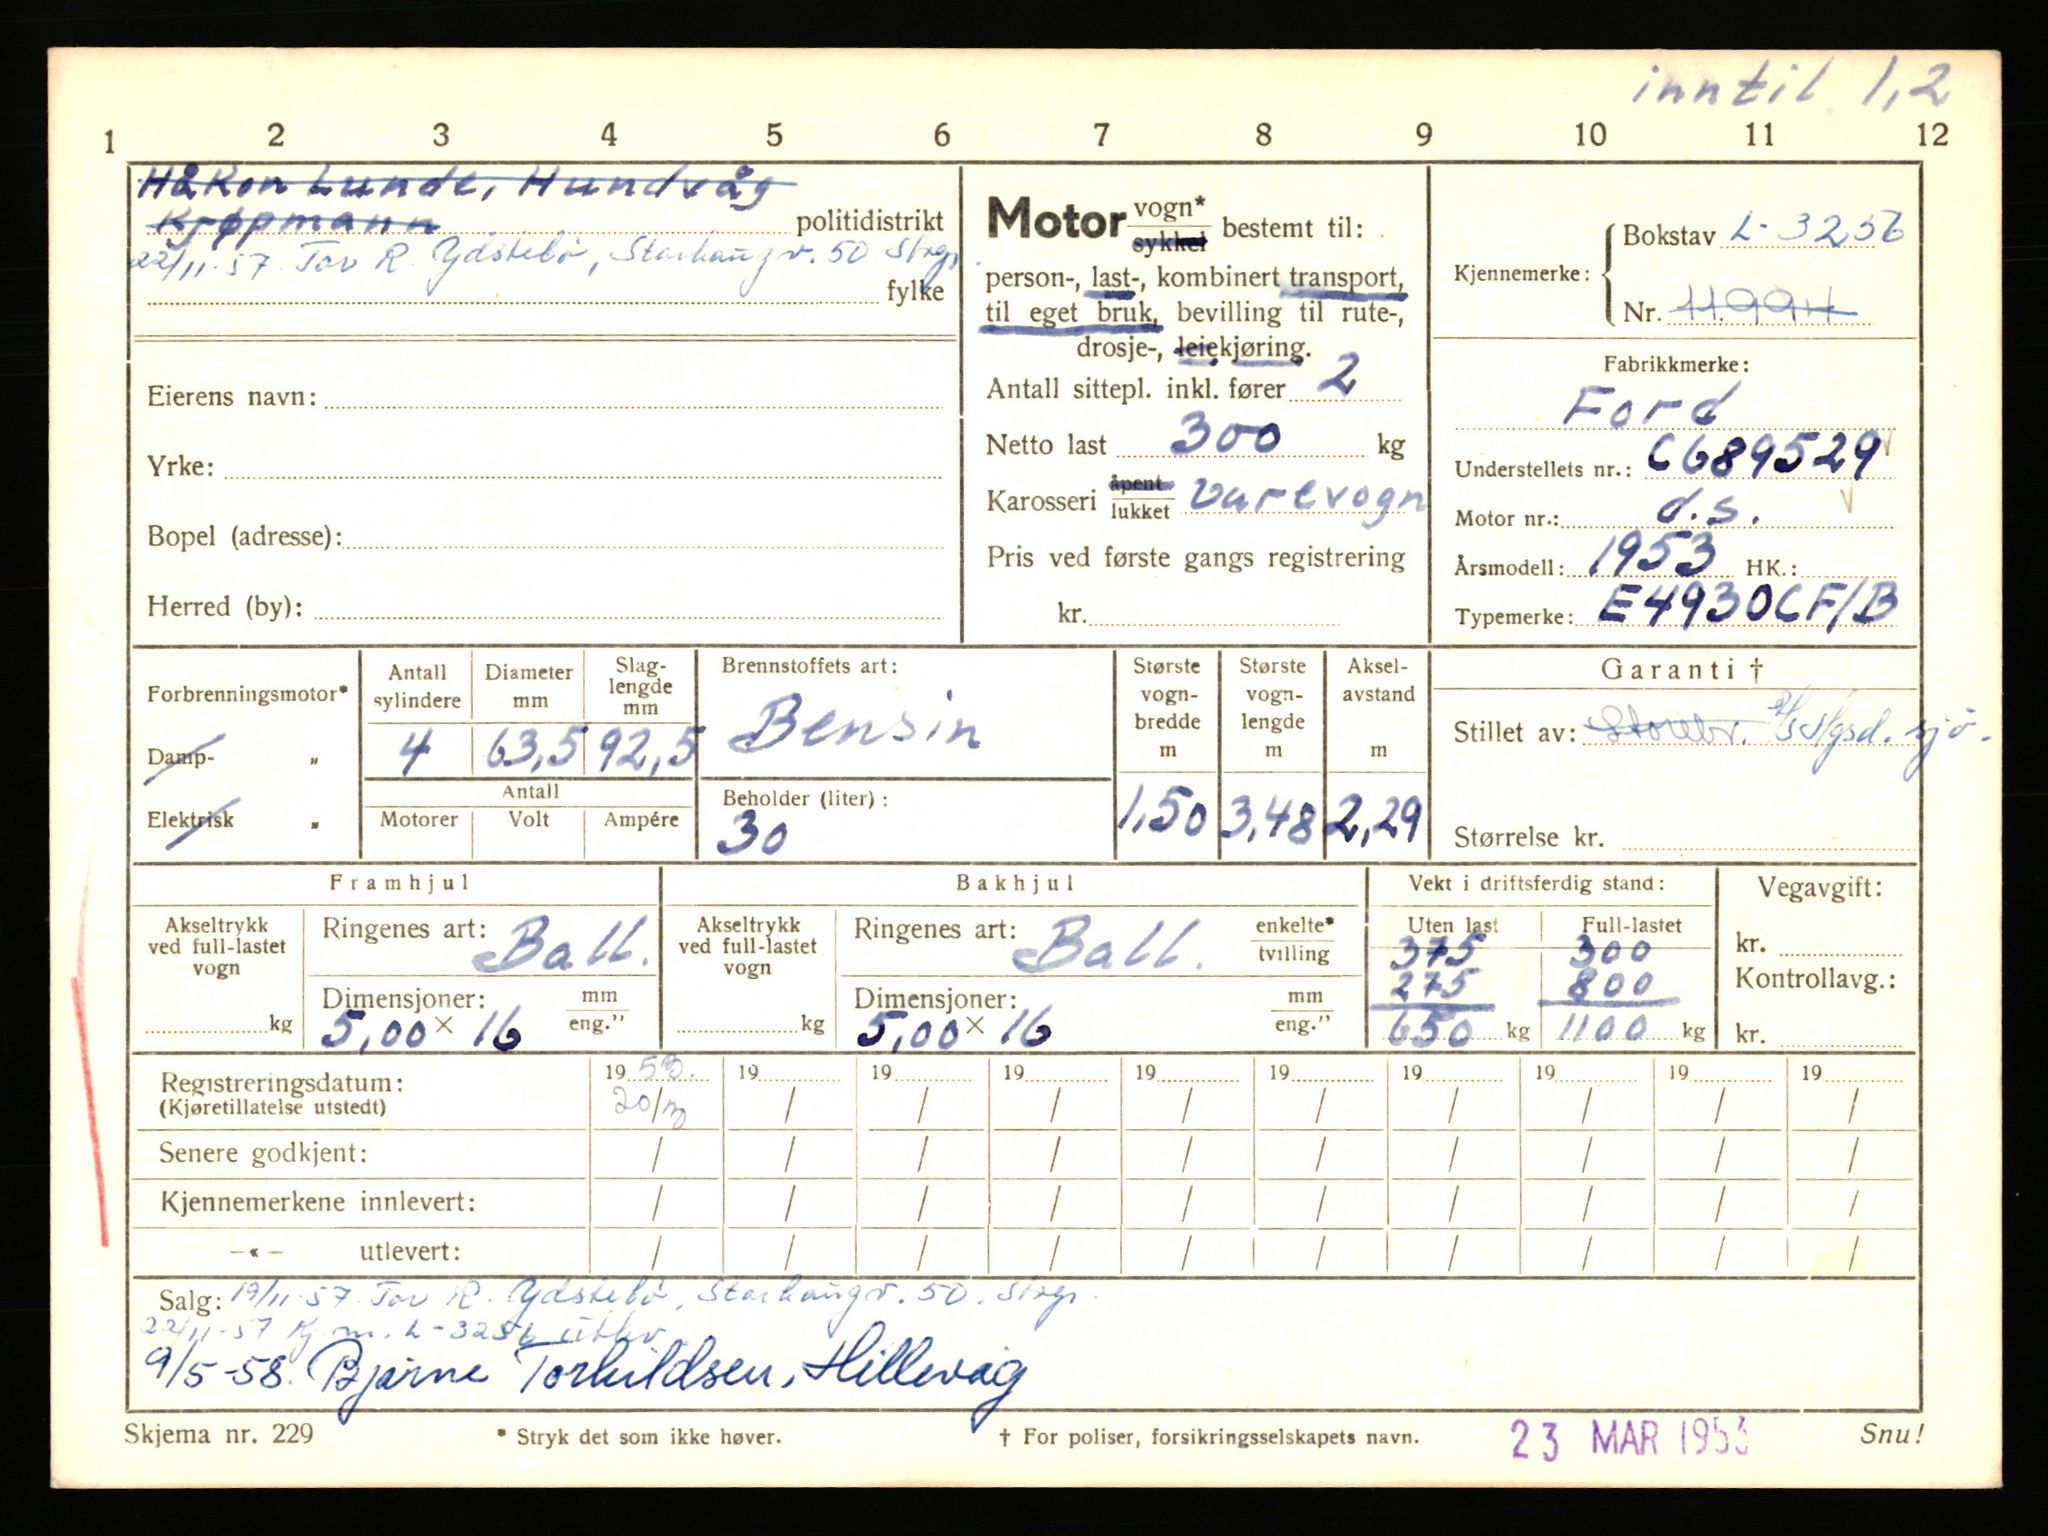 inntil 1,2
1 2 3 4 5 6 7 8 9 10 11 12
Håkon Lunde, Hundvåg
Kjøpmann politidistrikt
22/11-57 Tov R. Ydstebø, Storhaugv. 50 Stvgr.
fylke
Eierens navn:
Yrke:
Bopel (adresse):
Herred (by):
Motor vogn* sykkel bestemt til:
person-, last-, kombinert transport,
til eget bruk, bevilling til rute-,
drosje-, leiekjøring.
Antall sittepl. inkl. fører 2
Netto last 300 kg
Karosseri åpent lukket Varevogn
Pris ved første gangs registrering
kr.
Kjennemerke: Bokstav L-3256
Nr. 11994
Fabrikkmerke:
Ford
Understellets nr.: C689529
Motor nr.: d.s.
Årsmodell: 1953 HK.:
Typemerke: E4930CF/B
Forbrenningsmotor*
Damp- „
Elektrisk „
Antall sylindere 4
Diameter mm 63,5
Slag-lengde mm 92,5
Antall
Motorer Volt Ampére
Brennstoffets art:
Bensin
Beholder (liter):
30
Største vogn-bredde m 1,50
Største vogn-lengde m 3,48
Aksel-avstand m 2,29
Garanti †
Stillet av: Storebr. sjø.
Størrelse kr.
Framhjul
Akseltrykk ved full-lastet vogn
kg
Ringenes art: Ball.
Dimensjoner: mm eng."
5,00 × 16
Bakhjul
Akseltrykk ved full-lastet vogn
kg
Ringenes art: Ball. enkelte* tvilling
Dimensjoner: mm eng."
5,00 × 16
Vekt i driftsferdig stand:
Uten last Full-lastet
375 300
275 800
650 kg 1100 kg
Vegavgift:
kr.
Kontrollavg.:
kr.
Registreringsdatum: 19 53. 19 19 19 19 19 19 19 19 19
(Kjøretillatelse utstedt) 20/3 / / / / / / / / /
Senere godkjent: / / / / / / / / / /
Kjennemerkene innlevert: / / / / / / / / / /
—«— utlevert: / / / / / / / / / /
Salg: 19/11-57 Tov R. Ydstebø, Storhaugv. 50. Stvgr.
22/11-57 Kj.m. L-3256 utlev
9/5-58. Bjarne Torkildsen, Hillevåg
Skjema nr. 229 * Stryk det som ikke høver. † For poliser, forsikringsselskapets navn. 23 MAR 1953 Snu!